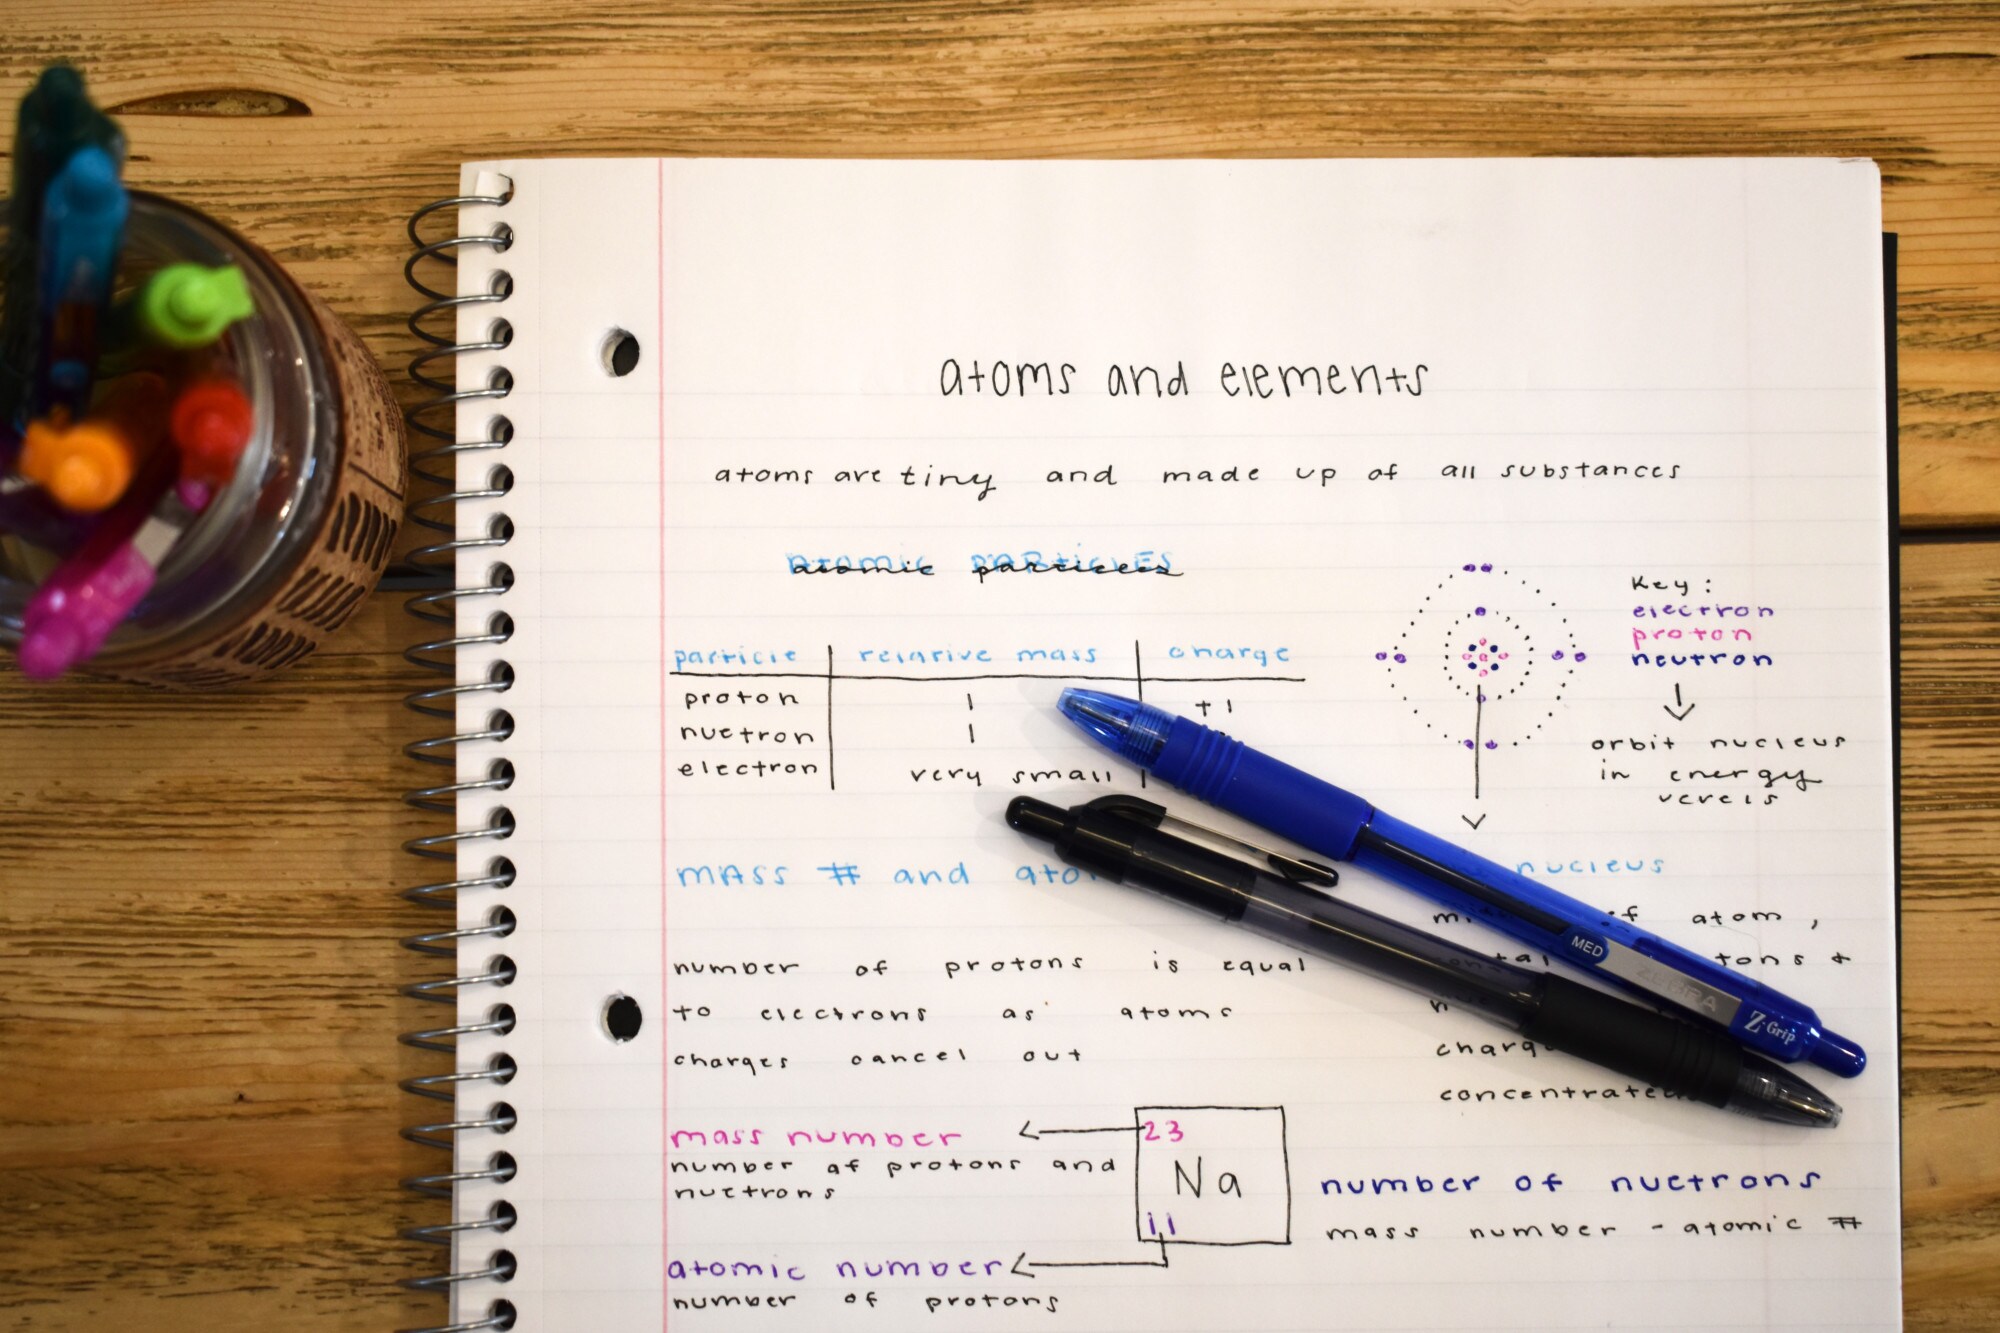 atoms and elements
atoms are tiny and made up of all substances
atomic particles
Key:
electron
proton
neutron
particle relative mass charge
proton 1 +1
nuetron 1
electron very small
orbit nucleus
in energy
verels
mass # and
nucleus
of atom,
number of protons is equal
to electrons as atoms
charges cancel out
concentrated
MED
ZEBRA
Z-Grip
mass number
number of protons and
nuetrons
23
Na
11
number of nuetrons
mass number - atomic #
atomic number
number of protons